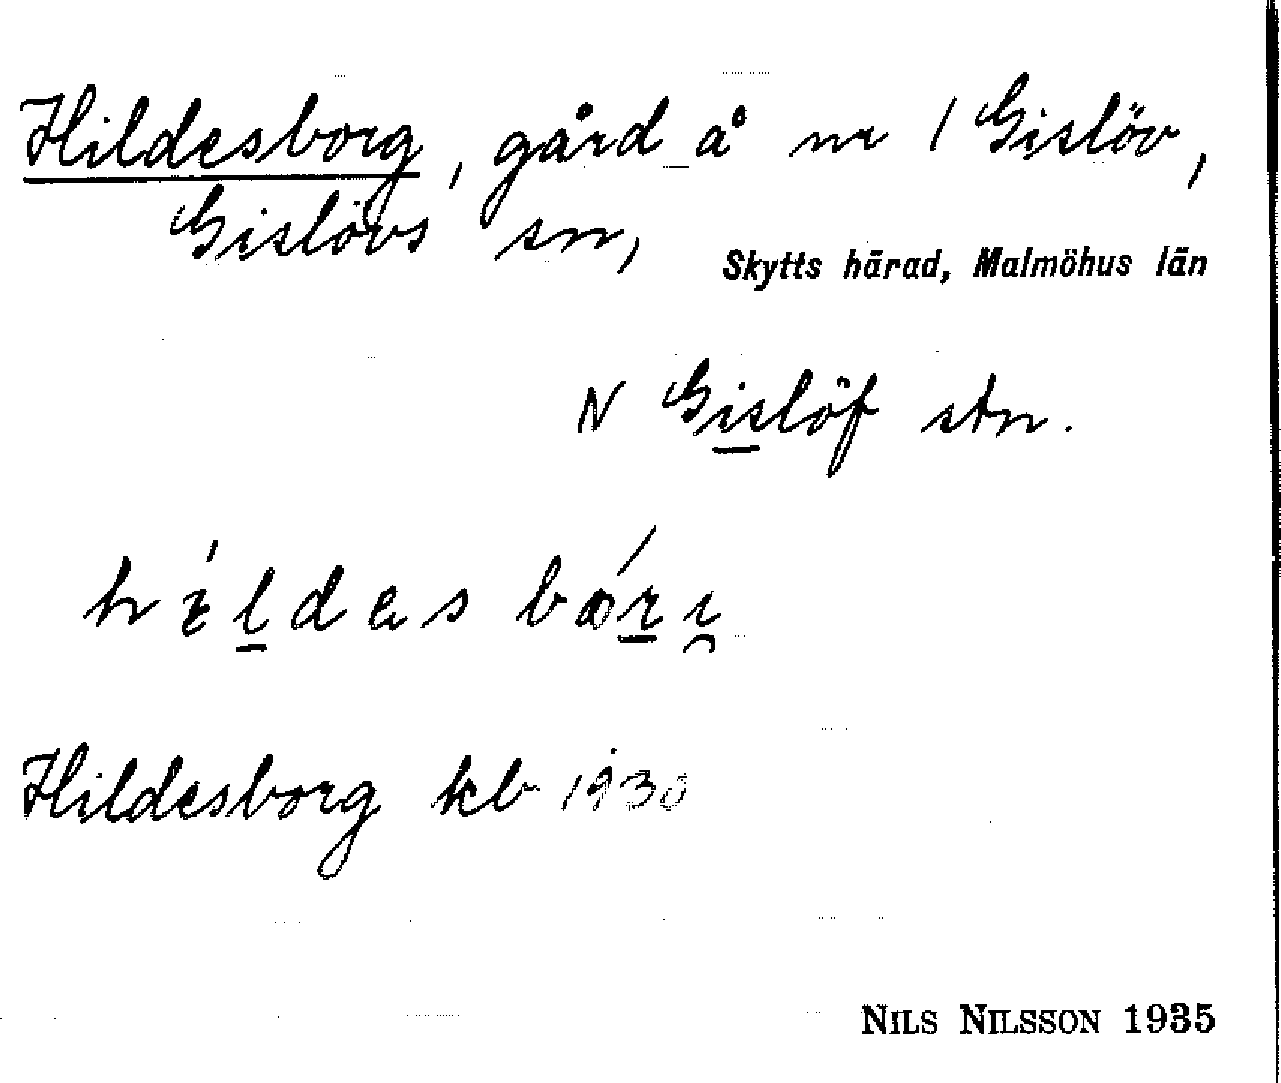 Hildesborg, gård å nr 1 Gislöv,
Gislövs sn,
Skytts härad, Malmöhus län
N Gislöf stn.
Hildesborg kb 1930
NILS NILSSON 1935